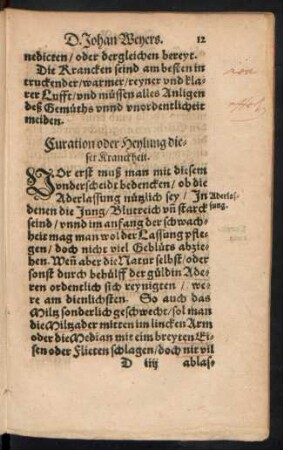 D. Johan Weyers. 12
nedicten/ oder dergleichen bereyt.
Die Krancken seind am besten in
truckender/ warmer/ reyner vnd kla-
rer Lufft/ vnd müssen alles Anligen
deß Gemüths vnnd vnordentlicheit
meiden.
Curation oder Heylung die-
ser Kranckheit.
VOr erst muß man mit diesem
vnderscheidt bedencken/ ob die
Aderlassung nützlich sey/ In
Aderlas-
sung.
denen die Jung/ Blutreich vñ starck
seind/ vnnd im anfang der schwach-
heit mag man wol der Lassung pfle-
gen/ doch nicht viel Geblüts abzie-
hen. Weñ aber die Natur selbst/ oder
sonst durch behülff der güldin Ade-
ren ordentlich sich reynigten/ we-
re am dienlichsten. So auch das
Miltz sonderlich geschwecht/ sol man
die Miltzader mitten im lincken Arm
oder die Median mit eim breyten Ei-
sen oder Flieten schlagen/ doch nit vil
D iiij ablas-